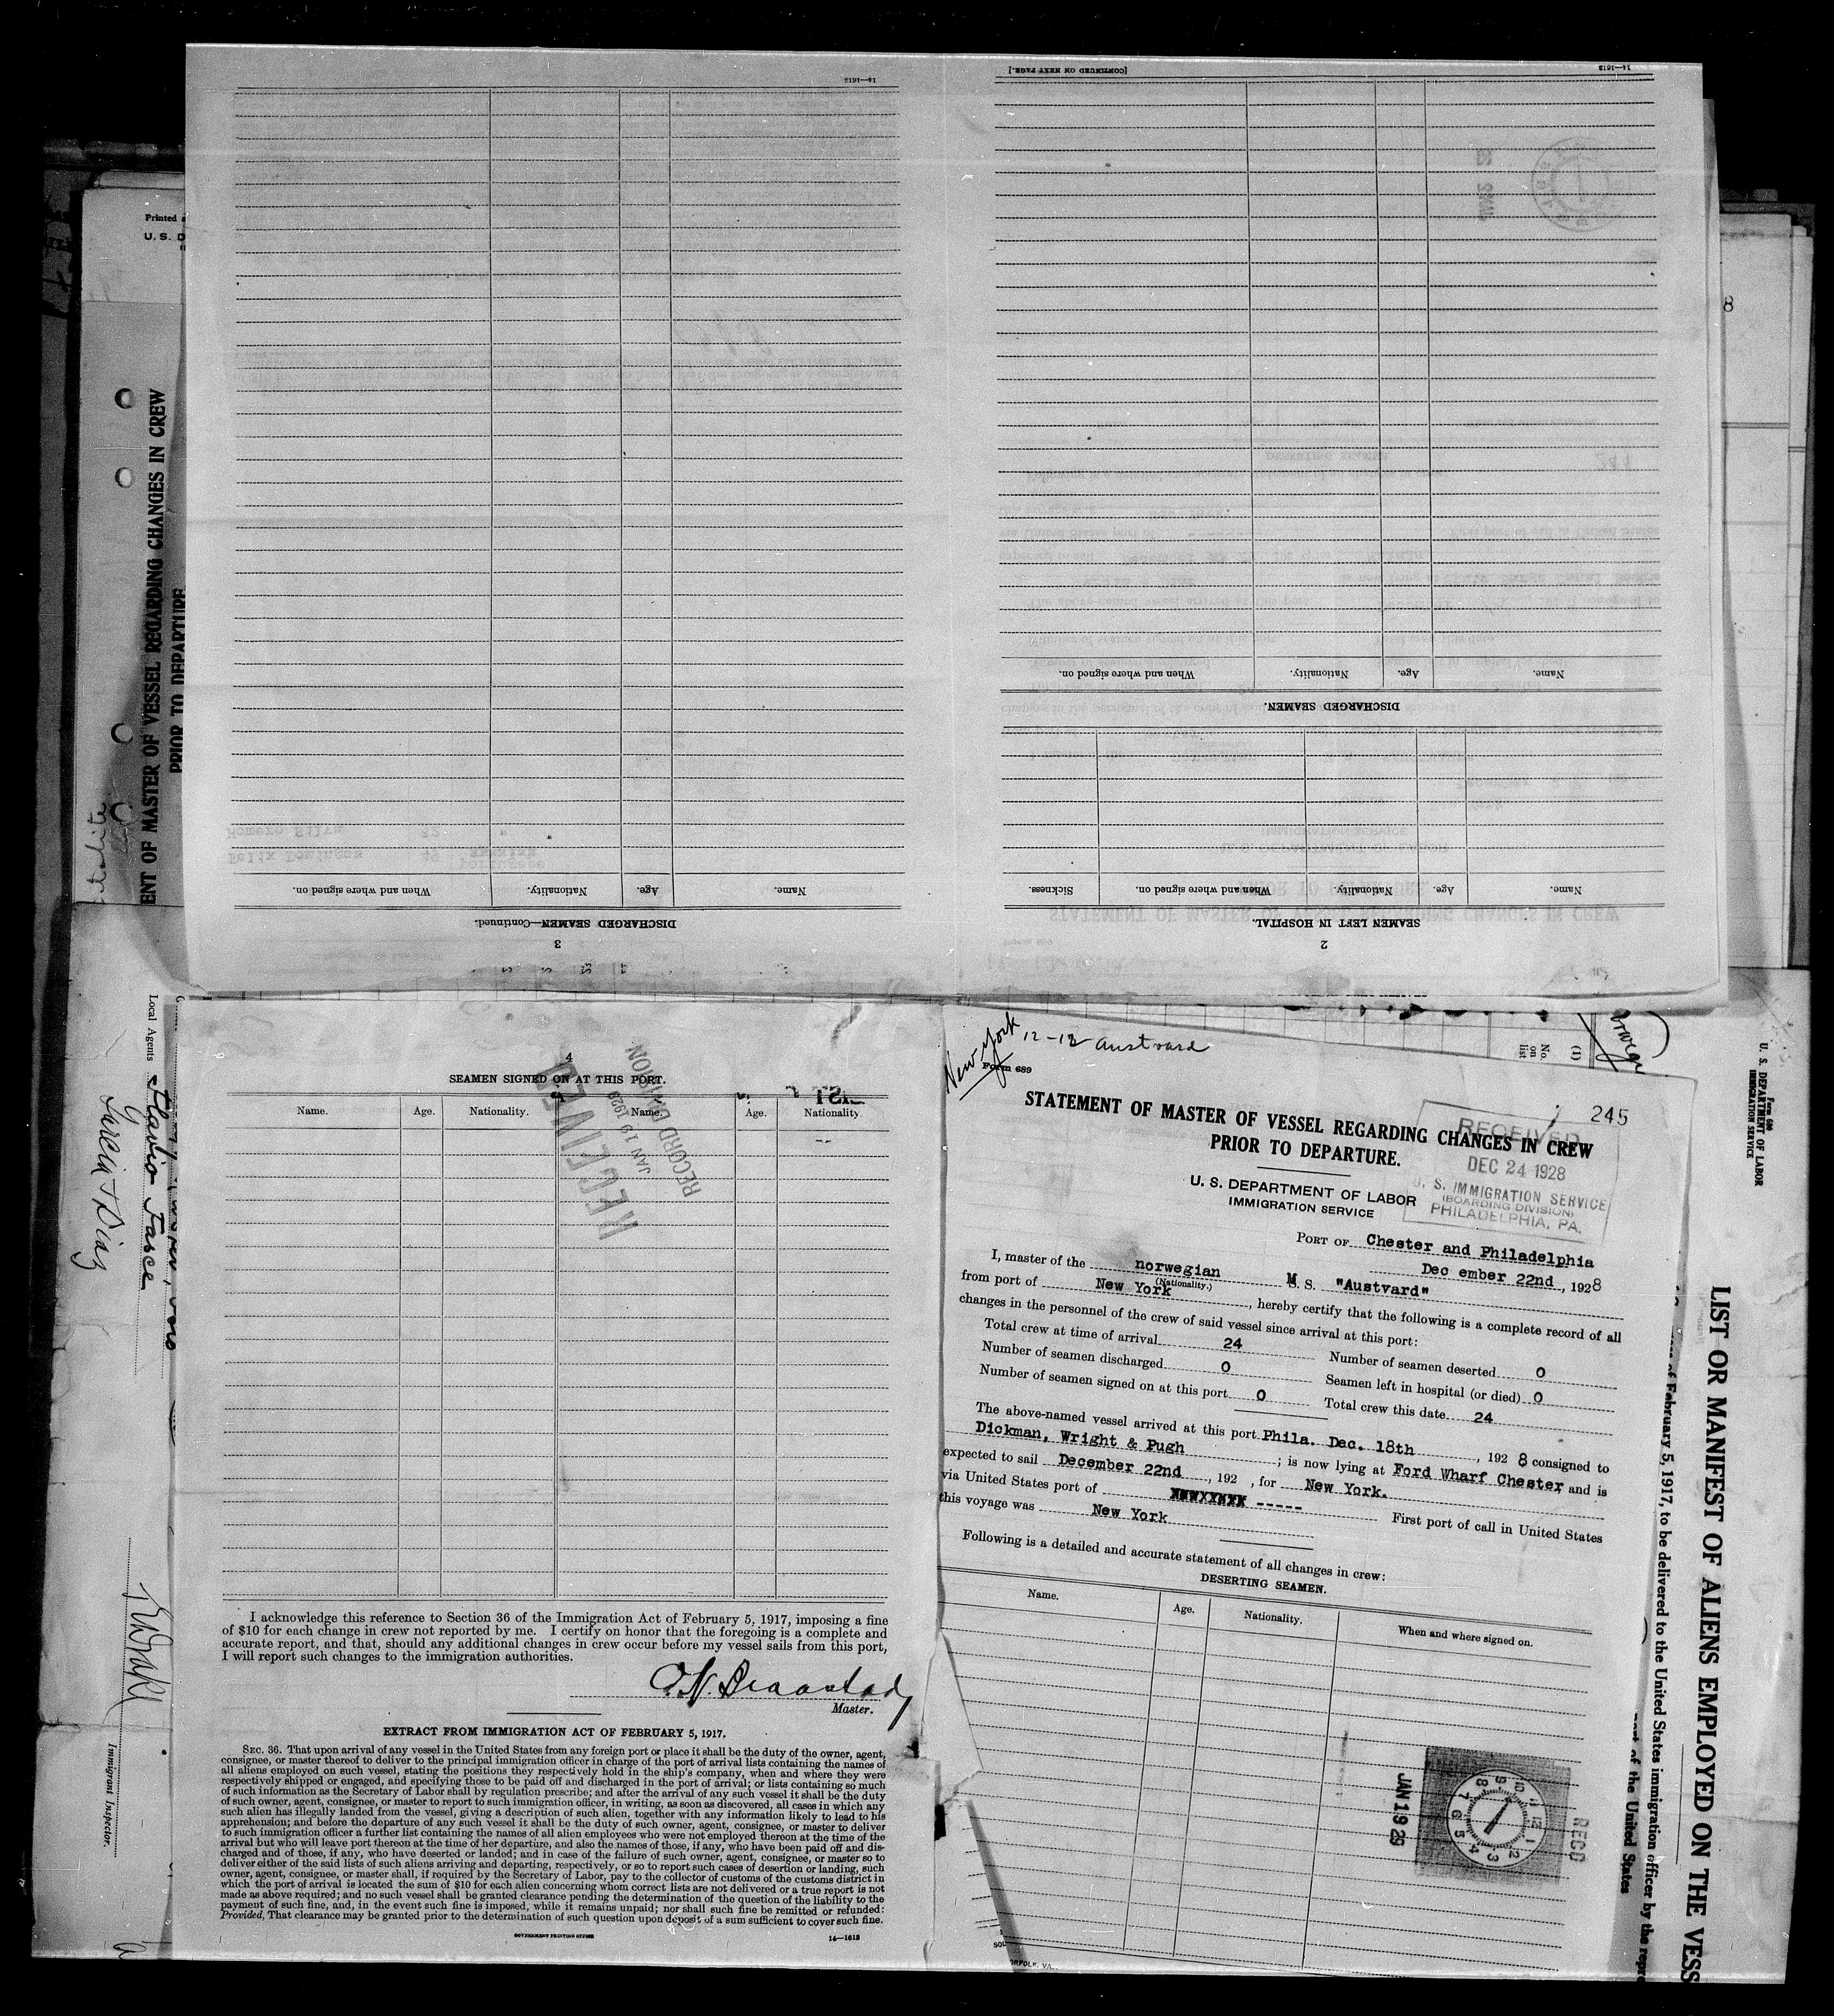 14—1613
[CONTINUED ON NEXT PAGE.]
14—1613
Name.
Age.
Nationality.
When and where signed on.
DISCHARGED SEAMEN.
Name.
Age.
Nationality.
When and where signed on.
Sickness.
SEAMEN LEFT IN HOSPITAL.
2
Name.
Age.
Nationality.
When and where signed on.
DISCHARGED SEAMEN—Continued.
3
Printed
U. S. D
8
ENT OF MASTER OF VESSEL REGARDING CHANGES IN CREW
PRIOR TO DEPARTURE
Local Agents
Garcia & Diaz
Immigrant Inspector.
4
SEAMEN SIGNED ON AT THIS PORT.
Name. Age. Nationality. Name. Age. Nationality
RECEIVED
JAN 19 1929
RECORD DIVISION
I acknowledge this reference to Section 36 of the Immigration Act of February 5, 1917, imposing a fine
of $10 for each change in crew not reported by me. I certify on honor that the foregoing is a complete and
accurate report, and that, should any additional changes in crew occur before my vessel sails from this port,
I will report such changes to the immigration authorities.
Master.
EXTRACT FROM IMMIGRATION ACT OF FEBRUARY 5, 1917.
SEC. 36. That upon arrival of any vessel in the United States from any foreign port or place it shall be the duty of the owner, agent,
consignee, or master thereof to deliver to the principal immigration officer in charge of the port of arrival lists containing the names of
all aliens employed on such vessel, stating the positions they respectively hold in the ship's company, when and where they were
respectively shipped or engaged, and specifying those to be paid off and discharged in the port of arrival; or lists containing so much
of such information as the Secretary of Labor shall by regulation prescribe; and after the arrival of any such vessel it shall be the duty
of such owner, agent, consignee, or master to report to such immigration officer, in writing, as soon as discovered, all cases in which any
such alien has illegally landed from the vessel, giving a description of such alien, together with any information likely to lead to his
apprehension; and before the departure of any such vessel it shall be the duty of such owner, agent, consignee, or master to deliver
to such immigration officer a further list containing the names of all alien employees who were not employed thereon at the time of the
arrival but who will leave port thereon at the time of her departure, and also the names of those, if any, who have been paid off and dis-
charged and of those, if any, who have deserted or landed; and in case of the failure of such owner, agent, consignee, or master so to
deliver either of the said lists of such aliens arriving and departing, respectively, or so to report such cases of desertion or landing, such
owner, agent, consignee, or master shall, if required by the Secretary of Labor, pay to the collector of customs of the customs district in
which the port of arrival is located the sum of $10 for each alien concerning whom correct lists are not delivered or a true report is not
made as above required; and no such vessel shall be granted clearance pending the determination of the question of the liability to the
payment of such fine, and, in the event such fine is imposed, while it remains unpaid; nor shall such fine be remitted or refunded:
Provided, That clearance may be granted prior to the determination of such question upon deposit of a sum sufficient to cover such fine.
GOVERNMENT PRINTING OFFICE
14—1613
New York 12-18 Austvard
Form 689
245
STATEMENT OF MASTER OF VESSEL REGARDING CHANGES IN CREW
PRIOR TO DEPARTURE.
U. S. DEPARTMENT OF LABOR
IMMIGRATION SERVICE
RECEIVED
DEC 24 1928
U. S. IMMIGRATION SERVICE
(BOARDING DIVISION)
PHILADELPHIA, PA.
PORT OF Chester and Philadelphia
Dec ember 22nd, 1928
I, master of the norwegian M S. S. "Austvard"
(Nationality.)
from port of New York, hereby certify that the following is a complete record of all
changes in the personnel of the crew of said vessel since arrival at this port:
Total crew at time of arrival 24
Number of seamen deserted 0
Number of seamen discharged 0
Seamen left in hospital (or died) 0
Number of seamen signed on at this port 0
Total crew this date 24
The above-named vessel arrived at this port Phila. Dec. 18th, 192 8 consigned to
Dickman, Wright & Pugh; is now lying at Ford Wharf Chester and is
expected to sail December 22nd, 192 , for New York.
via United States port of ----- First port of call in United States
this voyage was New York
Following is a detailed and accurate statement of all changes in crew:
DESERTING SEAMEN.
Name. Age. Nationality. When and where signed on.
JAN 19 29
REC'D
NORFOLK, VA.
(1)
No. on list
Form 680
U. S. DEPARTMENT OF LABOR
IMMIGRATION SERVICE
LIST OR MANIFEST OF ALIENS EMPLOYED ON THE VESS
of February 5, 1917, to be delivered to the United States immigration officer by the repre
port of the United States